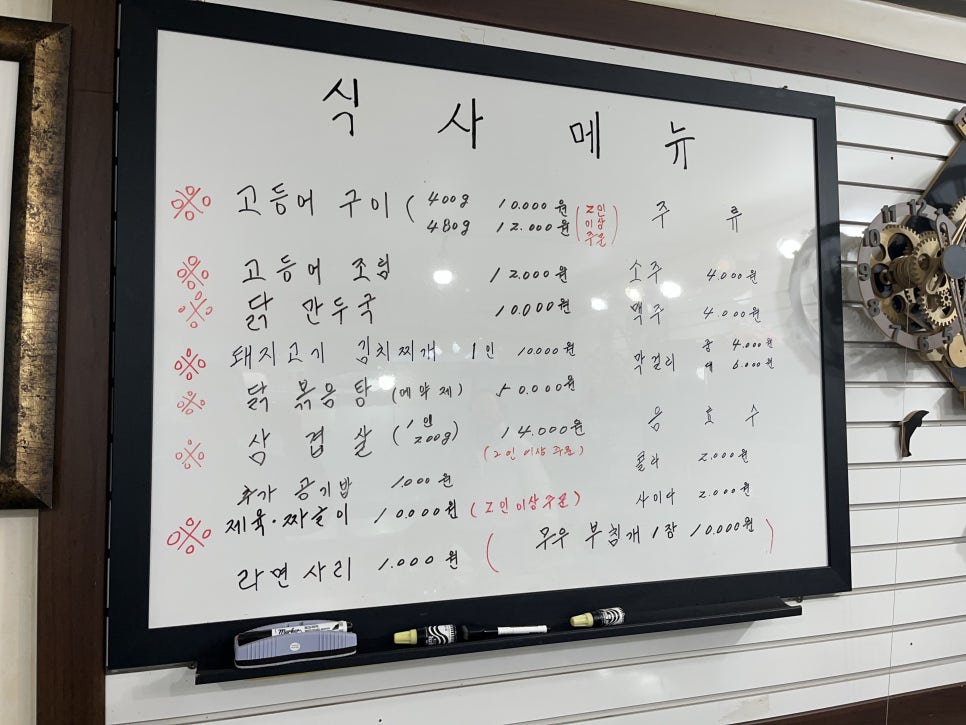 식 사 메 뉴
※ 고등어 구이 ( 400g 10.000원
480g 12.000원
(2인
이상
주문)
※ 고등어 조림 12.000원
※ 닭 만두국 10.000원
※ 돼지고기 김치찌개 1인 10.000원
※ 닭 볶음탕 (예약제) 50.000원
※ 삼겹살 (1인
200g) 14.000원
(2인 이상 주문)
추가 공기밥 1.000원
※ 제육·짜글이 10.000원 (2인이상주문)
라면사리 1.000원
주 류
소주 4.000원
맥주 4.000원
막걸리 소 4.000원
대 6.000원
음 료 수
콜라 2.000원
사이다 2.000원
( 무우 부침개 1장 10.000원 )
Marker
12
11
10
9
8
7